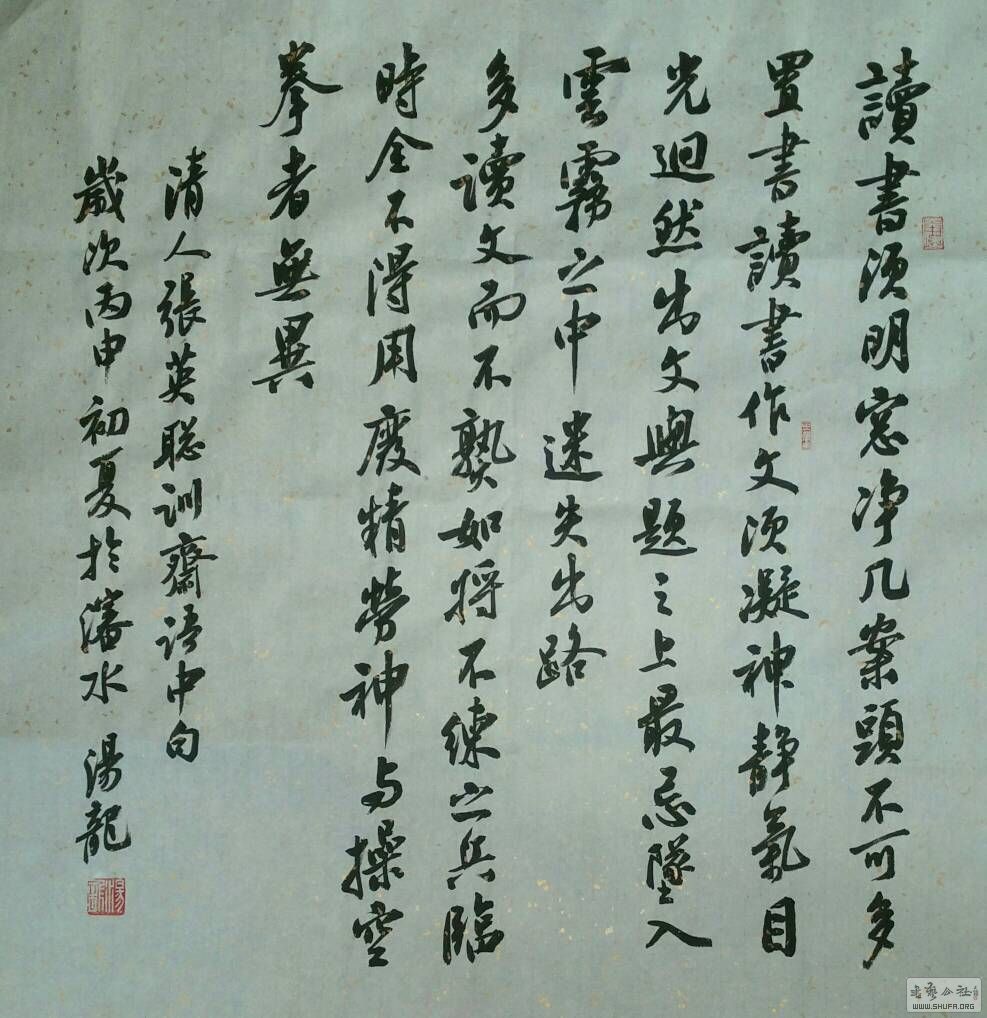 讀書須明窓净几案頭不可多
置書讀書作文須凝神靜氣目
光迥然出文與題之上最忌墜入
雲霧之中迷失出路
多讀文而不熟如將不練之兵臨
時全不得用廢精勞神与操空
拳者無異
清人張英聡訓齋语中句
歲次丙申初夏於瀋水 湯龍
WWW.SHUFA.ORG